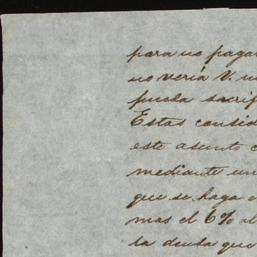 para no paga
no vería V. u
pueda sacrif
Estas consid
este asunto c
mediante un
que se haga
mas el 6% al
la deuda que